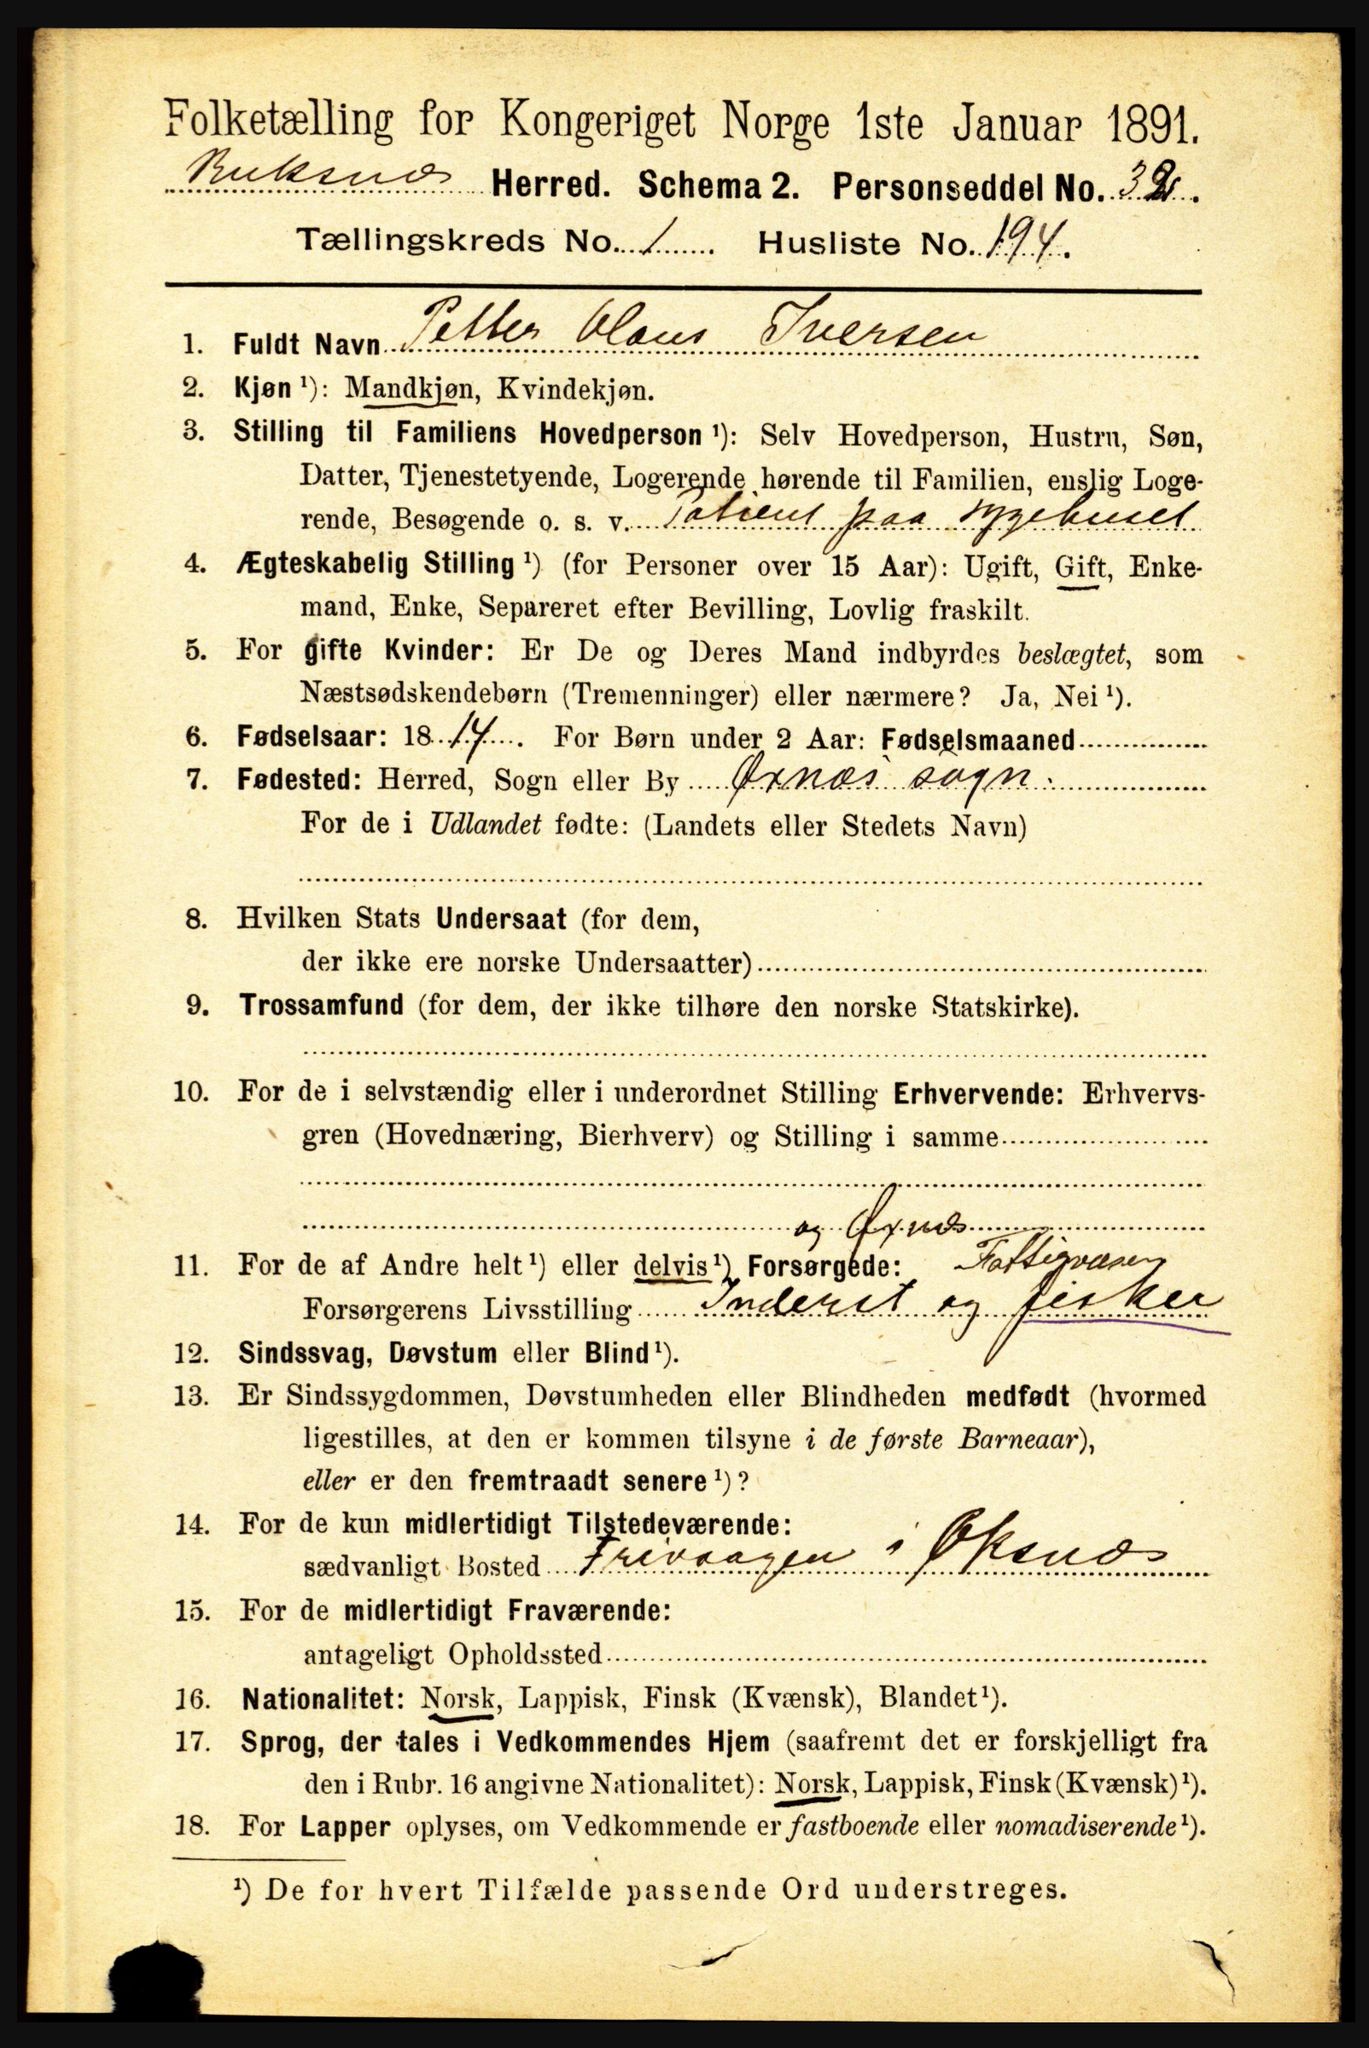 Folketælling for Kongeriget Norge 1ste Januar 1891.
Buksnæs Herred. Schema 2. Personseddel No. 32.
Tællingskreds No. 1. Husliste No. 194.
1. Fuldt Navn Petter Olaus Iversen
2. Kjøn ¹): Mandkjøn, Kvindekjøn.
3. Stilling til Familiens Hovedperson ¹): Selv Hovedperson, Hustru, Søn,
Datter, Tjenestetyende, Logerende hørende til Familien, enslig Loge-
rende, Besøgende o. s. v. Patient paa sygehuset
4. Ægteskabelig Stilling ¹) (for Personer over 15 Aar): Ugift, Gift, Enke-
mand, Enke, Separeret efter Bevilling, Lovlig fraskilt.
5. For gifte Kvinder: Er De og Deres Mand indbyrdes beslægtet, som
Næstsødskendebørn (Tremenninger) eller nærmere? Ja, Nei ¹).
6. Fødselsaar: 1814. For Børn under 2 Aar: Fødselsmaaned
7. Fødested: Herred, Sogn eller By Øxnæs sogn.
For de i Udlandet fødte: (Landets eller Stedets Navn)
8. Hvilken Stats Undersaat (for dem,
der ikke ere norske Undersaatter)
9. Trossamfund (for dem, der ikke tilhøre den norske Statskirke).
10. For de i selvstændig eller i underordnet Stilling Erhvervende: Erhvervs-
gren (Hovednæring, Bierhverv) og Stilling i samme
og Øxnæs
11. For de af Andre helt ¹) eller delvis ¹) Forsørgede: Fattigvæsen
Forsørgerens Livsstilling Inderst og fisker
12. Sindssvag, Døvstum eller Blind ¹).
13. Er Sindssygdommen, Døvstumheden eller Blindheden medfødt (hvormed
ligestilles, at den er kommen tilsyne i de første Barneaar),
eller er den fremtraadt senere ¹)?
14. For de kun midlertidigt Tilstedeværende:
sædvanligt Bosted Frivaagen i Øksnæs
15. For de midlertidigt Fraværende:
antageligt Opholdssted
16. Nationalitet: Norsk, Lappisk, Finsk (Kvænsk), Blandet ¹).
17. Sprog, der tales i Vedkommendes Hjem (saafremt det er forskjelligt fra
den i Rubr. 16 angivne Nationalitet): Norsk, Lappisk, Finsk (Kvænsk) ¹).
18. For Lapper oplyses, om Vedkommende er fastboende eller nomadiserende ¹).
¹) De for hvert Tilfælde passende Ord understreges.